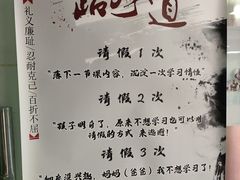 礼义廉耻 忍耐克己 百折不屈
请假1次
"落下一节课内容，沉淀一次学习惰性"
请假2次
"孩子明白了，原来不想学习也可以用
请假的方式 来逃避！
请假3次
妈妈（爸爸）我不想学习了！